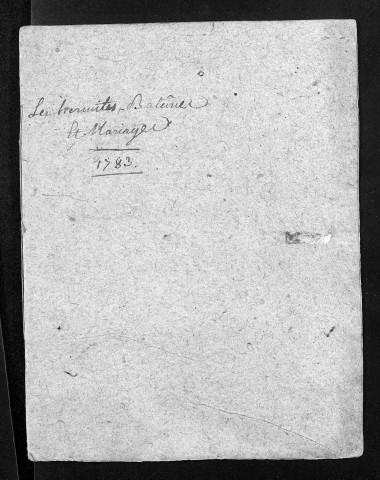 Les hermites - Batême
Et Mariages
1783.